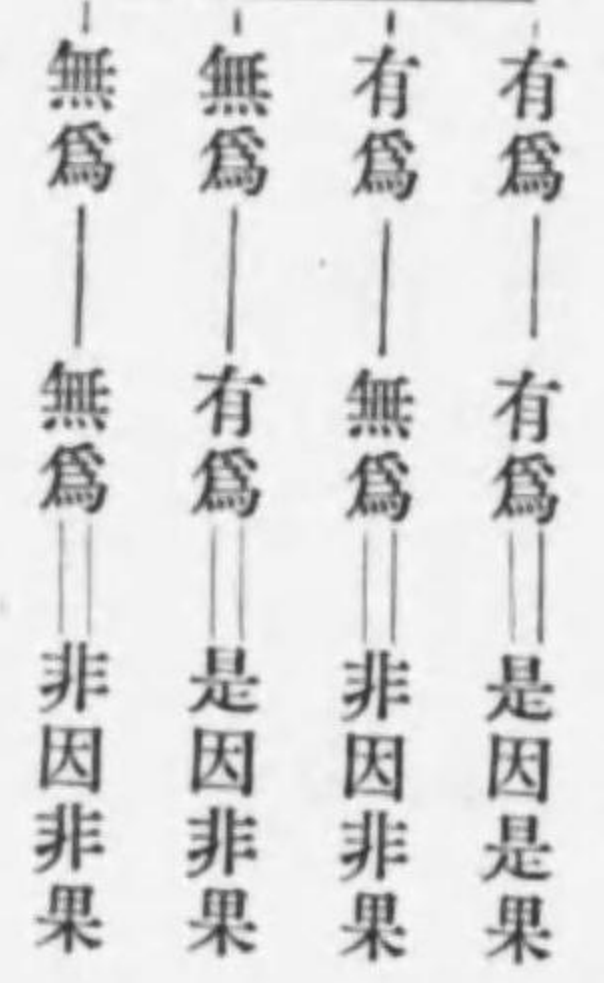 有爲―有爲＝是因是果
有爲―無爲＝非因非果
無爲―有爲＝是因非果
無爲―無爲＝非因非果